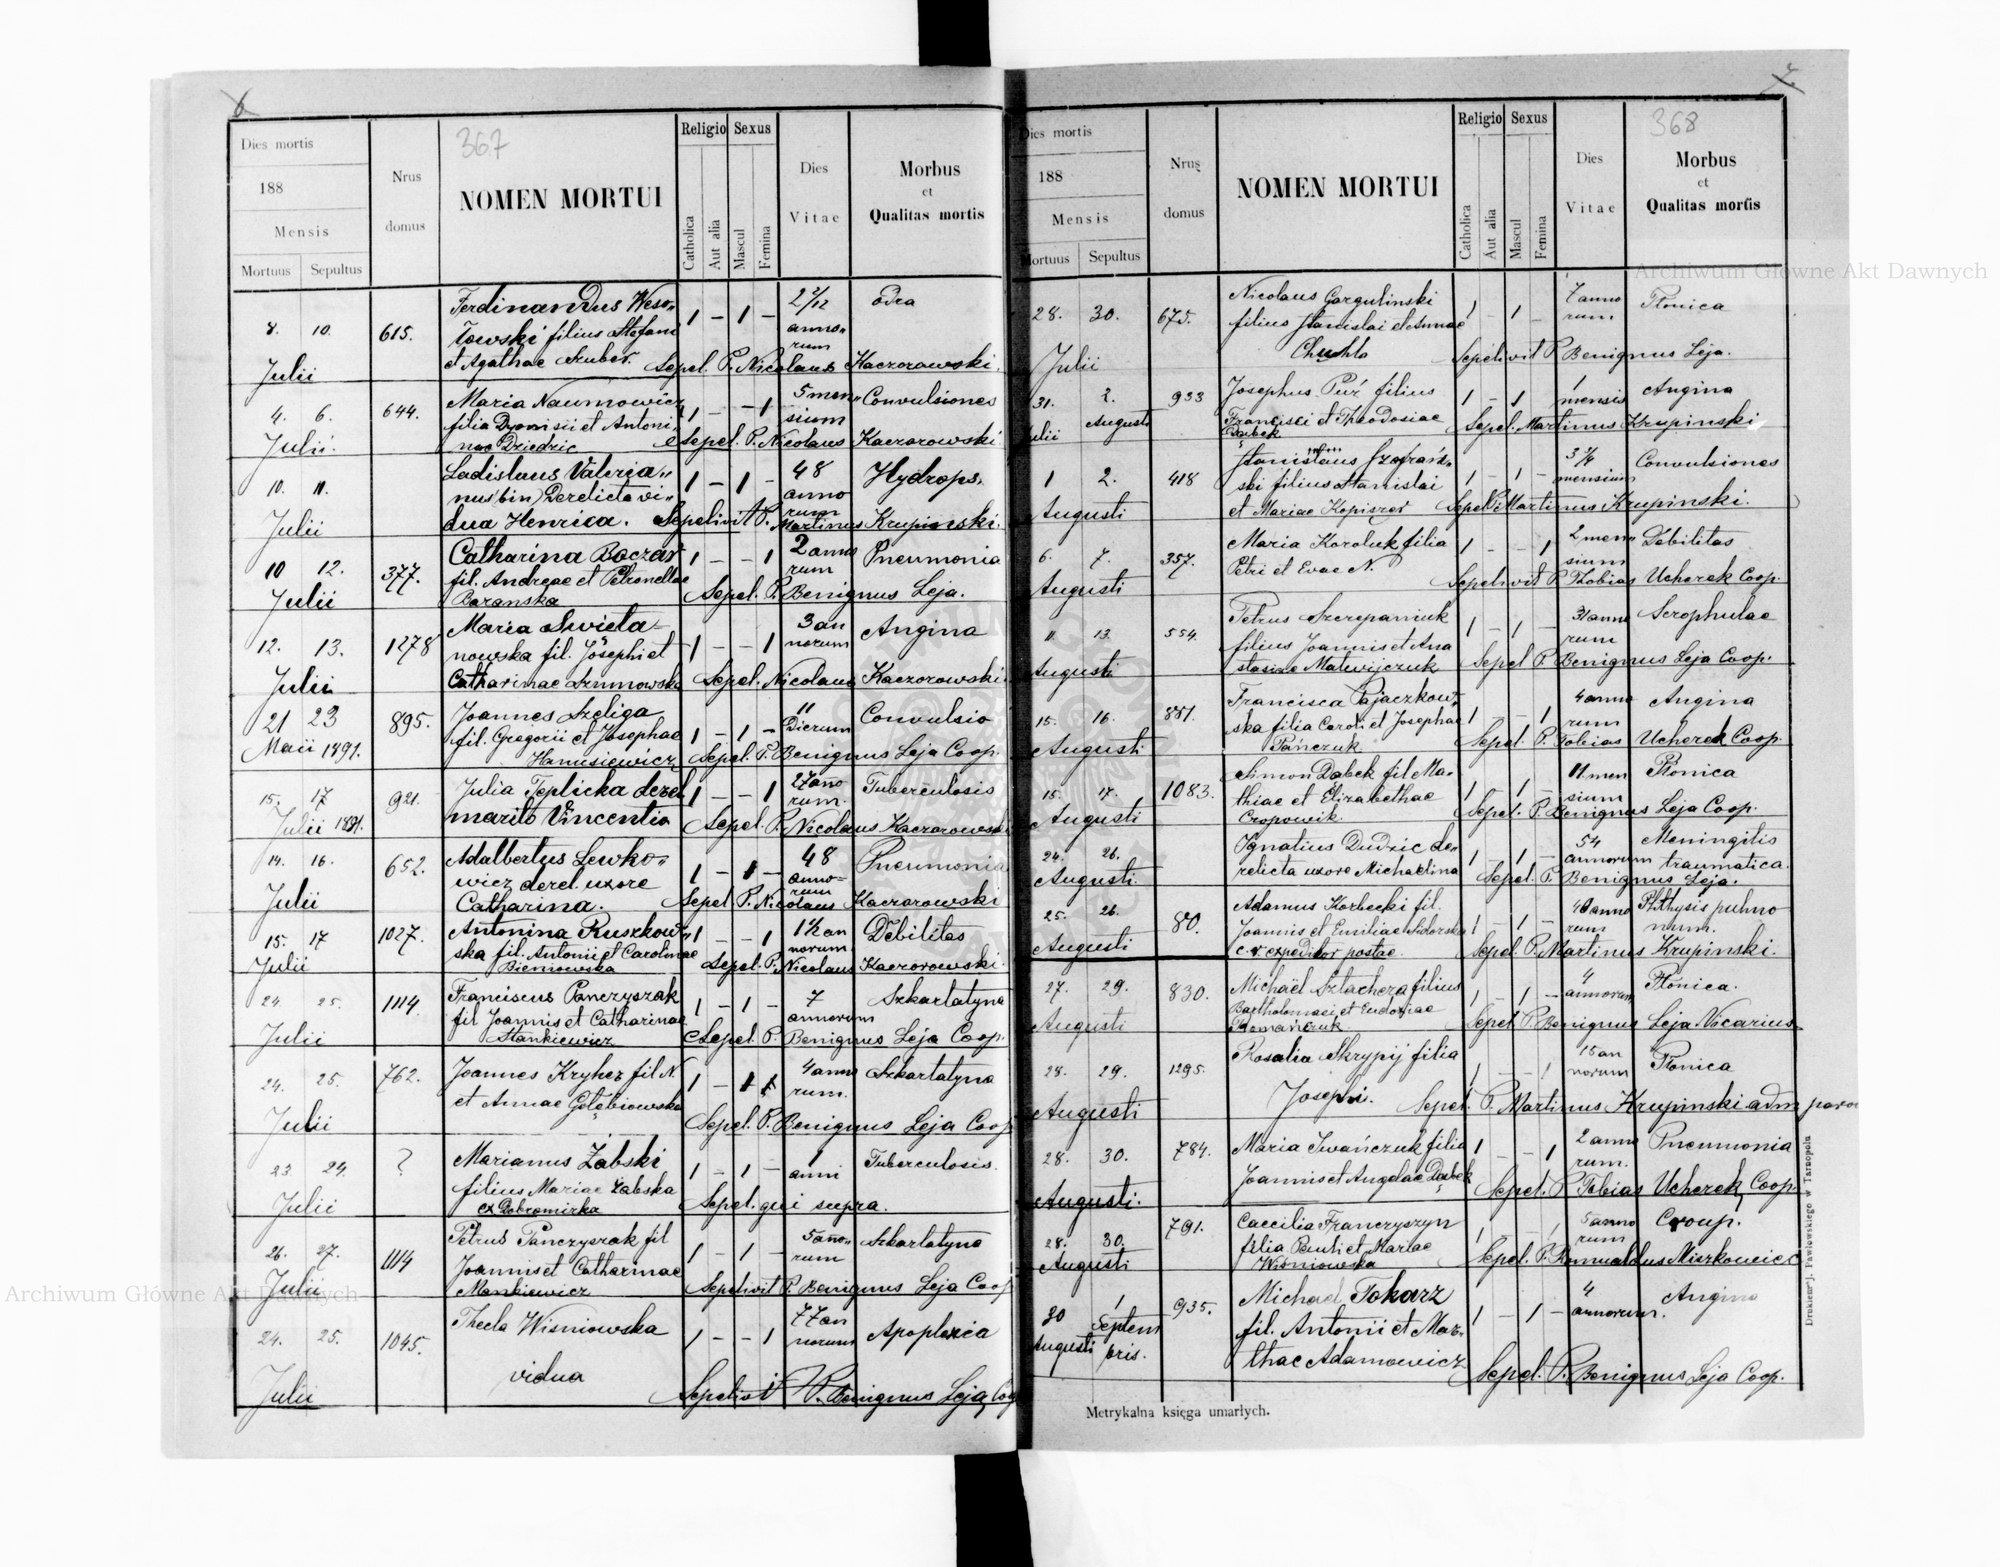 6
Dies mortis
188
Mensis
Mortuus Sepultus
Nrus
domus
367
NOMEN MORTUI
Religio
Catholica
Aut alia
Sexus
Mascul
Femina
Dies
Vitae
Morbus
et
Qualitas mortis
8. 10. 615. Ferdinandus Weso„ 1 – 1 – 2 2/12 odra
łowski filius Stefani anno„
et Agathae Szuber. rum
Julii Sepel. P. Nicolaus Kaczorowski.
4. 6. 644. Maria Naumowicz 1 – – 1 5 men„ Convulsiones
filia Dyonisii et Antoni„ sium
Julii. nae Dziedzic Sepel. P. Nicolaus Kaczorowski
10. 11. Ladislaus Valeria„ 1 – 1 – 48 Hydrops.
nus (bin) Derelicta vi„ anno
Julii dua Henrica. rum
Sepelivit P. Martinus Krupinski.
10 12. 377. Catharina Baczar 1 – – 1 2 anno Pneumonia
fil. Andreae et Petronellae rum
Julii Baranska Sepel. P. Benignus Leja.
12. 13. 1278 Maria Swieta– 1 – – 1 3 an Angina
nowska fil. Josephi et norum
Julii Catharinae Szumowska Sepel. Nicolaus Kaczorowski.
21 23 895. Joannes Szeliga 1 – 1 – 11 Convulsio
Maii 1891. fil. Gregorii et Josephae Dierum
Hanusiewicz Sepel. P. Benignus Leja Coop.
15. 17 921. Julia Teplicka derel 1 – – 1 27 ano Tuberculosis
marito Vincentio rum.
Julii 1891. Sepel. P. Nicolaus Kaczorowski
14. 16. 652. Adalbertus Lewko„ 1 – 1 – 48 Pneumonia
wicz derel. uxore anno–
Julii Catharina. rum
Sepel. P. Nicolaus Kaczorowski
15. 17 1027. Antonina Ruszkow„ 1 – – 1 1½ an Debilitas
ska fil. Antonii et Carolinae norum
Julii Bieniowska Sepel. P. Nicolaus Kaczorowski.
24. 25. 1114. Franciscus Panczyszak 1 – 1 – 7 Szkarlatyna
fil Joannis et Catharinae annorum
Julii Stankiewicz Sepel P. Benignus Leja Coop.
24. 25. 762. Joannes Kryher fil. N. 1 – 1 4 anno Szkarlatyna
et Annae Gołębiowska rum.
Julii Sepel. P. Benignus Leja Coop
23 24. ? Marianus Żabski 1 – 1 – 1 Tuberculosis.
filius Mariae Żabska anni
Julii ex Dobromirka Sepel. qui supra.
26. 27. 1114 Petrus Panczyszak fil 1 – 1 – 5 ano„ Szkarlatyna
Joannis et Catharinae rum
Julii Mankiewicz Sepelivit P. Benignus Leja Coop
24. 25. 1045. Thecla Wisniowska 1 – – 1 77 an Apoplexia
norum
vidua
Julii Sepelivit P. Benignus Leja Coop
7.
Dies mortis
188
Mensis
Mortuus Sepultus
Nrus
domus
NOMEN MORTUI
Religio
Catholica
Aut alia
Sexus
Mascul
Femina
Dies
Vitae
368
Morbus
et
Qualitas mortis
28. 30. 675. Nicolaus Gargulinski 1 1 – 7 anno Płonica
filius Stanislai et Annae rum
Chuchla Sepelivit P. Benignus Leja.
Julii
31. 2. 933 Josephus Puź filius 1 – 1 1 Angina
Julii Augusti Francisci et Theodosiae mensis
Dąbek Sepel. Martinus Krupinski
1 2. 418 Stanislaus Szafrań„ 1 – 1 – 3 ¾ Convulsiones
ski filius Stanislai mensium
Augusti et Mariae Sepel P. Martinus Krupinski.
6. 7. 357. Maria Koroluk filia 1 – 1 2 men„ Debilitas
Petri et Evae N. sium
Augusti Sepelivit P. Thobias Ucherek Coop.
11. 13. 554. Petrus Szczepaniuk 1 – 1 – 31 anno Scrophulae
filius Joannis et Ana rum
Augusti stasiae Matwijczuk Sepel P. Benignus Leja Coop.
15. 16. 881. Francisca Pajaczkow„ 1 – 1 4 anno Angina
ska filia Caroli et Josephae rum
Augusti Pańczuk Sepel. P. Tobias Ucherek Coop.
15. 17. 1083. Simon Dąbek fil Ma– 1 1 – 11 men Płonica
thiae et Elizabethae sium
Augusti Cropowik. Sepel. P. Benignus Leja Coop.
24. 26. Ignatius Dudzic de„ 1 – 1 – 54 Meningitis
relicta uxore Michaelina annorum traumatica.
Augusti. Sepel. P. Benignus Leja.
25. 26. 80. Adamus Korbecki fil. 1 – 1 – 40 anno Phthysis pulmo
Joannis et Emiliae Sidorska rum num.
Augusti c. r. expeditor postae. Sepel P. Martinus Krupinski.
27. 29. 830. Michael Sztachera filius 1 – 1 – 4 Płonica.
Bartholomaei et Eudoxiae annorum
Augusti Romańczuk Sepel. P. Benignus Leja Vicarius
28. 29. 1295. Rosalia Skrypij filia 1 – 1 15 an Płonica
norum
Augusti Josephi. Sepel. P. Martinus Krupinski adm paro
28. 30. 784. Maria Iwańczuk filia 1 – – 1 2 anno Pneumonia
rum.
Augusti. Joannis et Angelae Dąbek Sepel. P. Tobias Ucherek Coop
28. 30. 791. Caecilia Franczyszyn 1 1 5 anno Croup.
filia Pauli et Mariae rum
Augusti Wiśniowska Sepel. P. Romualdus
30 1 935. Michael Tokarz 1 – 1 – 4 Angina
Augusti Septem fil. Antonii et Mar„ annorum.
bris. thae Adamowicz Sepel. P. Benignus Leja Coop.
Metrykalna księga umarłych.
Drukiem J. Pawłowskiego w Tarnopolu
Archiwum Główne Akt Dawnych
Archiwum Główne Akt Dawnych